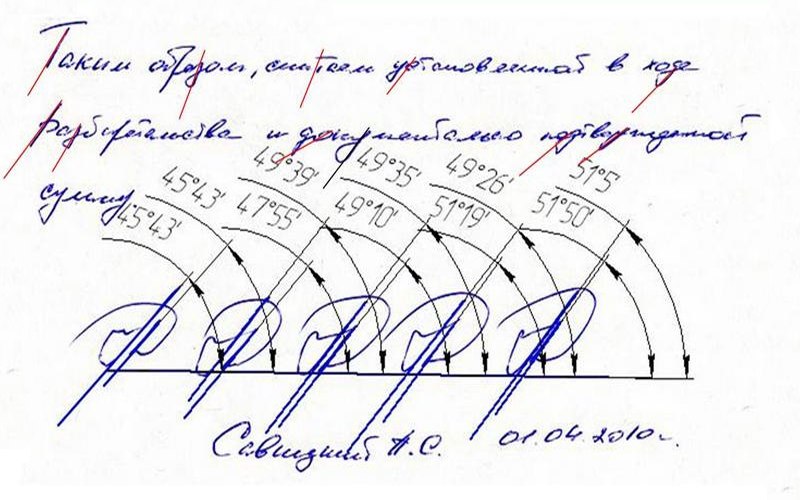 Таким образом, считаем установленной в ходе
разбирательства и документально подтвержденной
49°39' 49°35' 49°26' 51°5'
сумму 45°43' 47°55' 49°10' 51°19' 51°50'
45°43'
Савицкий А.С. 01.04.2010г.